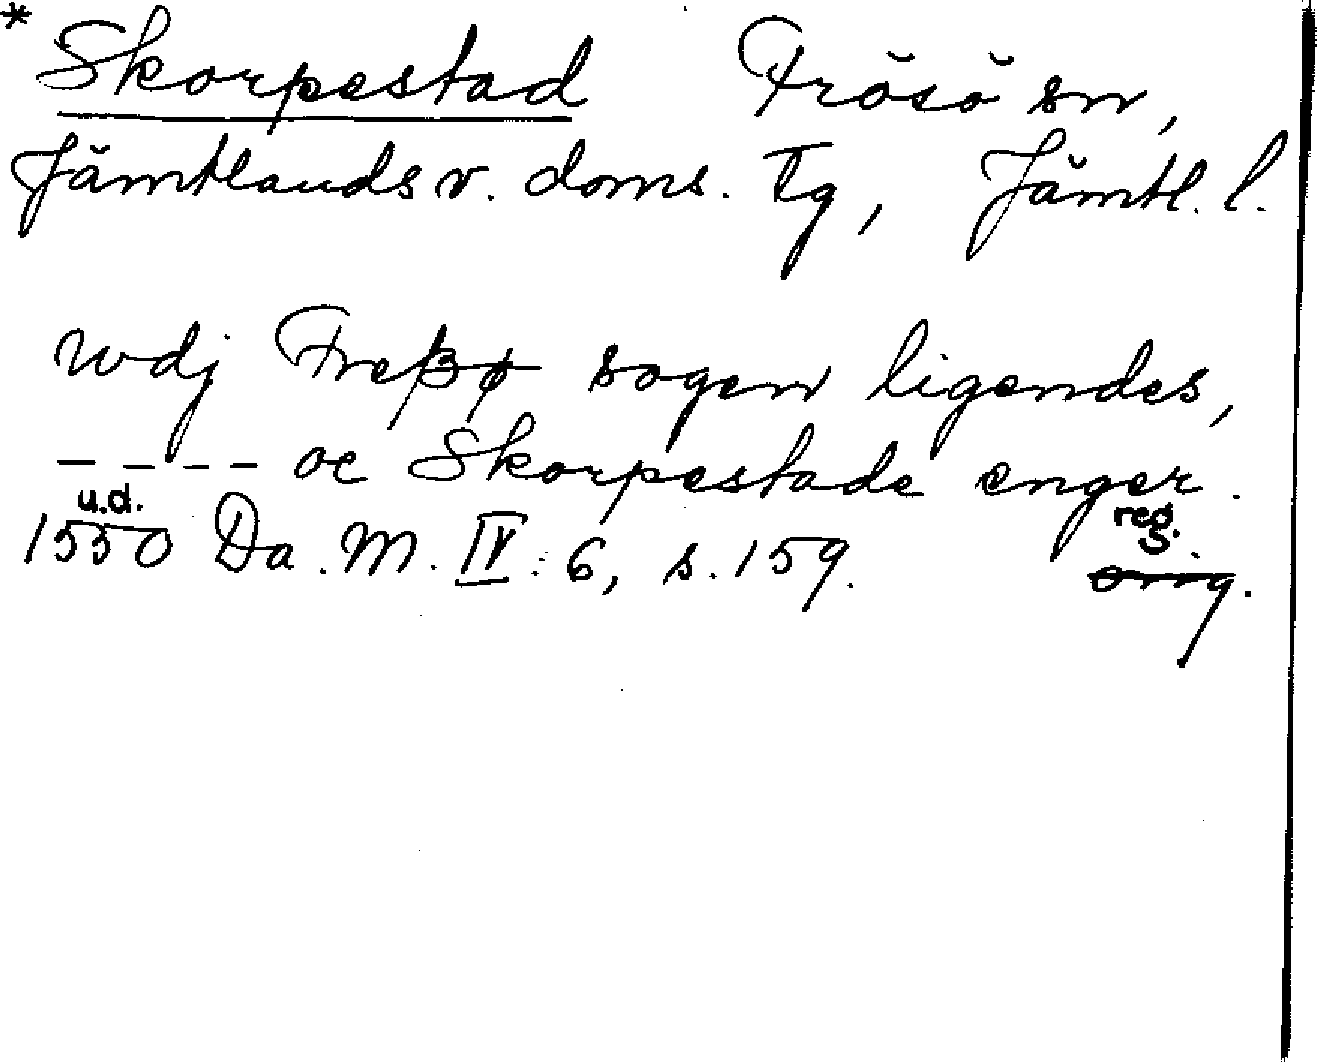 * Skorpestad Frösö sn,
Jämtlands v. doms. Tg, Jämtl. l.
udj Freßø sogen ligendes,
– – – – oc Skorpestade enger.
u.d. reg.
1550 Da. M. IV: 6, s. 159. orig.